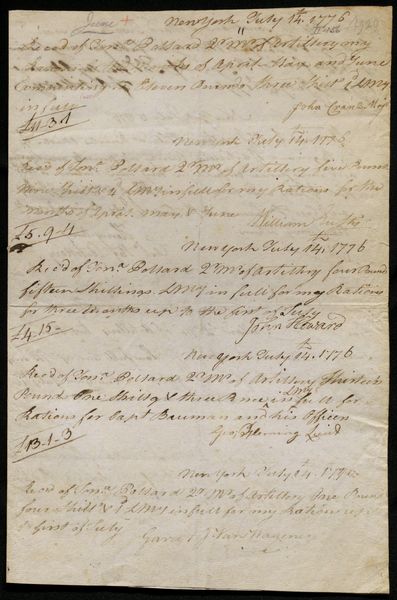 June +
New York July 14th, 1776
Rec'd of Jona. Pollard Q. Mr. of Artillery my
of April May and June
Eleven Pounds three Shill. LMy
in full
John Crane Maj
£11-3-1
New York July 14th, 1776
Rec'd of Jona. Pollard Q. Mr. of Artillery five Pound
Nine Shill. & 4 LMy in full for my Rations for the
Months of April May & June
William
£5.9.4
New York July 14th, 1776
Rec'd of Jona. Pollard Q. Mr. of Artillery four Pound
fifteen Shillings LMy in full for my Rations
for three Months up to the first of July
£4.15- John Howard
New York July 14th, 1776
Rec'd of Jona. Pollard Q. Mr. of Artillery thirteen
Pounds One Shilling & three Pence LMy in full for
Rations for Capt Bauman and his Officers
Geo Fleming Lieut
£13-1-3
New York July 14th, 1776
Rec'd of Jona. Pollard Q. Mr. of Artillery One Pound
four Shill. & LMy in full for my Rations up
to first of July
Van